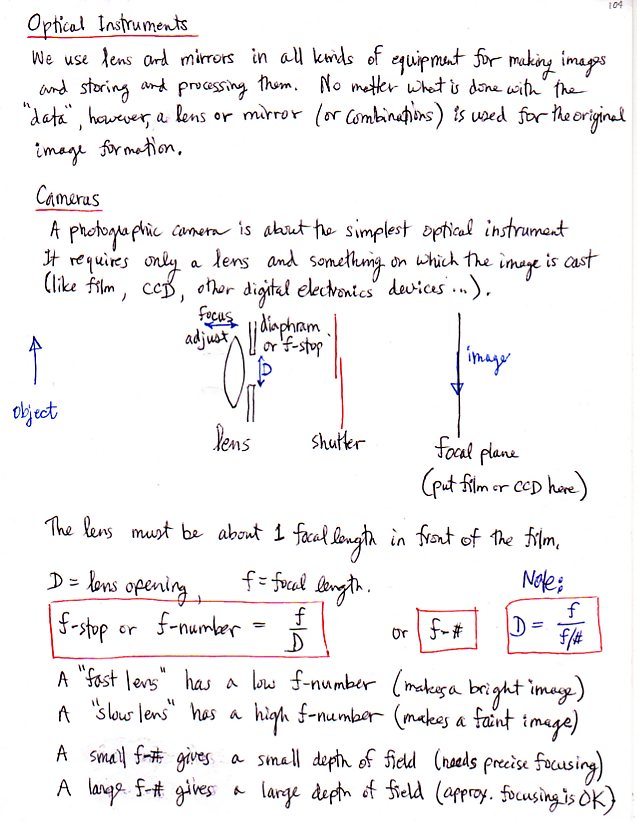 104
Optical Instruments
We use lens and mirrors in all kinds of equipment for making images
and storing and processing them. No matter what is done with the
"data", however, a lens or mirror (or combinations) is used for the original
image formation.
Cameras
A photographic camera is about the simplest optical instrument
It requires only a lens and something on which the image is cast
(like film, CCD, other digital electronics devices...).
focus
adjust
diaphram
or f-stop
D
image
object
lens
shutter
focal plane
(put film or CCD here)
The lens must be about 1 focal length in front of the film.
D = lens opening, f = focal length.
Note:
f-stop or f-number = f/D or f-# D = f/f/#
A "fast lens" has a low f-number (makes a bright image)
A "slow lens" has a high f-number (makes a faint image)
A small f-# gives a small depth of field (needs precise focusing)
A large f-# gives a large depth of field (approx. focusing is OK)